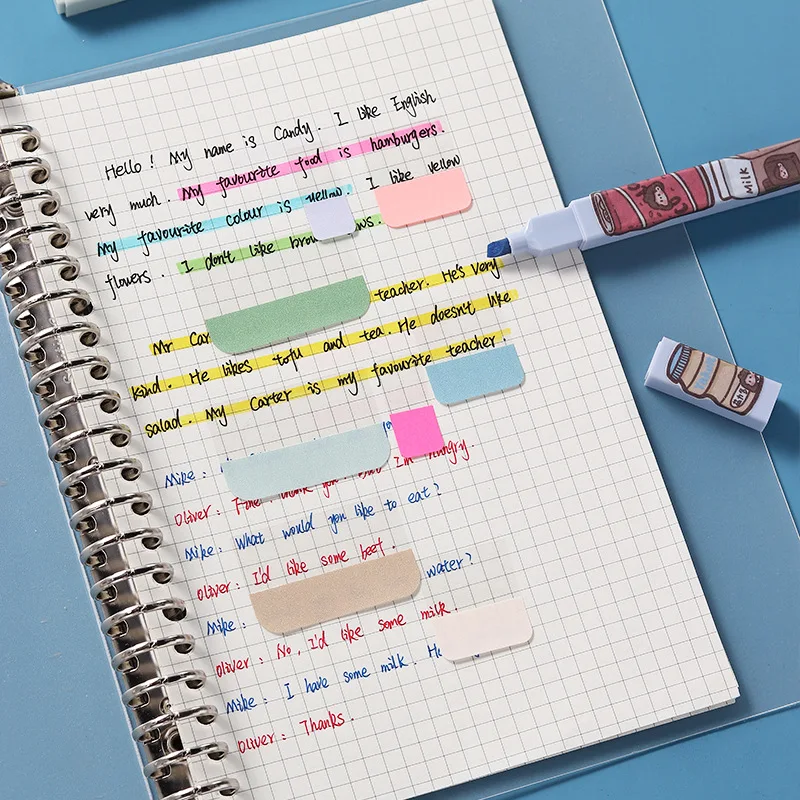 Hello! My name is Candy. I like English
very much. My favourite food is hamburgers.
My favourite colour is yellow. I like yellow
flowers. I don't like brow ws.
Mr Car teacher. He's very
kind. He likes tofu and tea. He doesn't like
salad. My Carter is my favourite teacher.
Mike:
Oliver: Fine, thank you. But I'm hungry.
Mike: What would you like to eat?
Oliver: I'd like some beef.
Mike: water?
Oliver: No, I'd like some milk.
Mike: I have some milk. He
Oliver: Thanks.
Milk